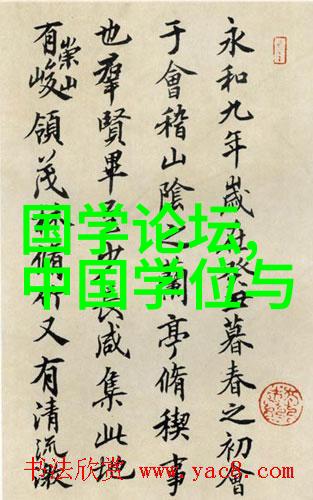 永和九年歲在癸丑暮春之初會
于會稽山陰之蘭亭脩稧事
也羣賢畢至少長咸集此地
有崇山峻領茂林脩竹又有清流激
国学论坛,
中国学位与
书法欣赏 www.yac8.com